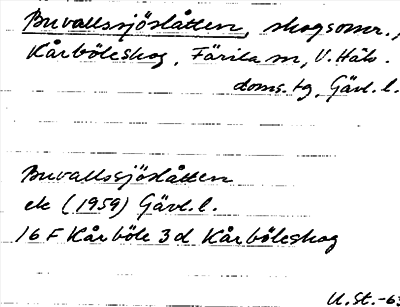 Buvallssjöslåtten, skogsomr.,
Kårböleskog, Färila sn, V. Häls.
doms. tg, Gävl. l.
Buvallssjöslåtten
ek (1959) Gävl. l.
16 F Kårböle 3d Kårböleskog
U.St.-63